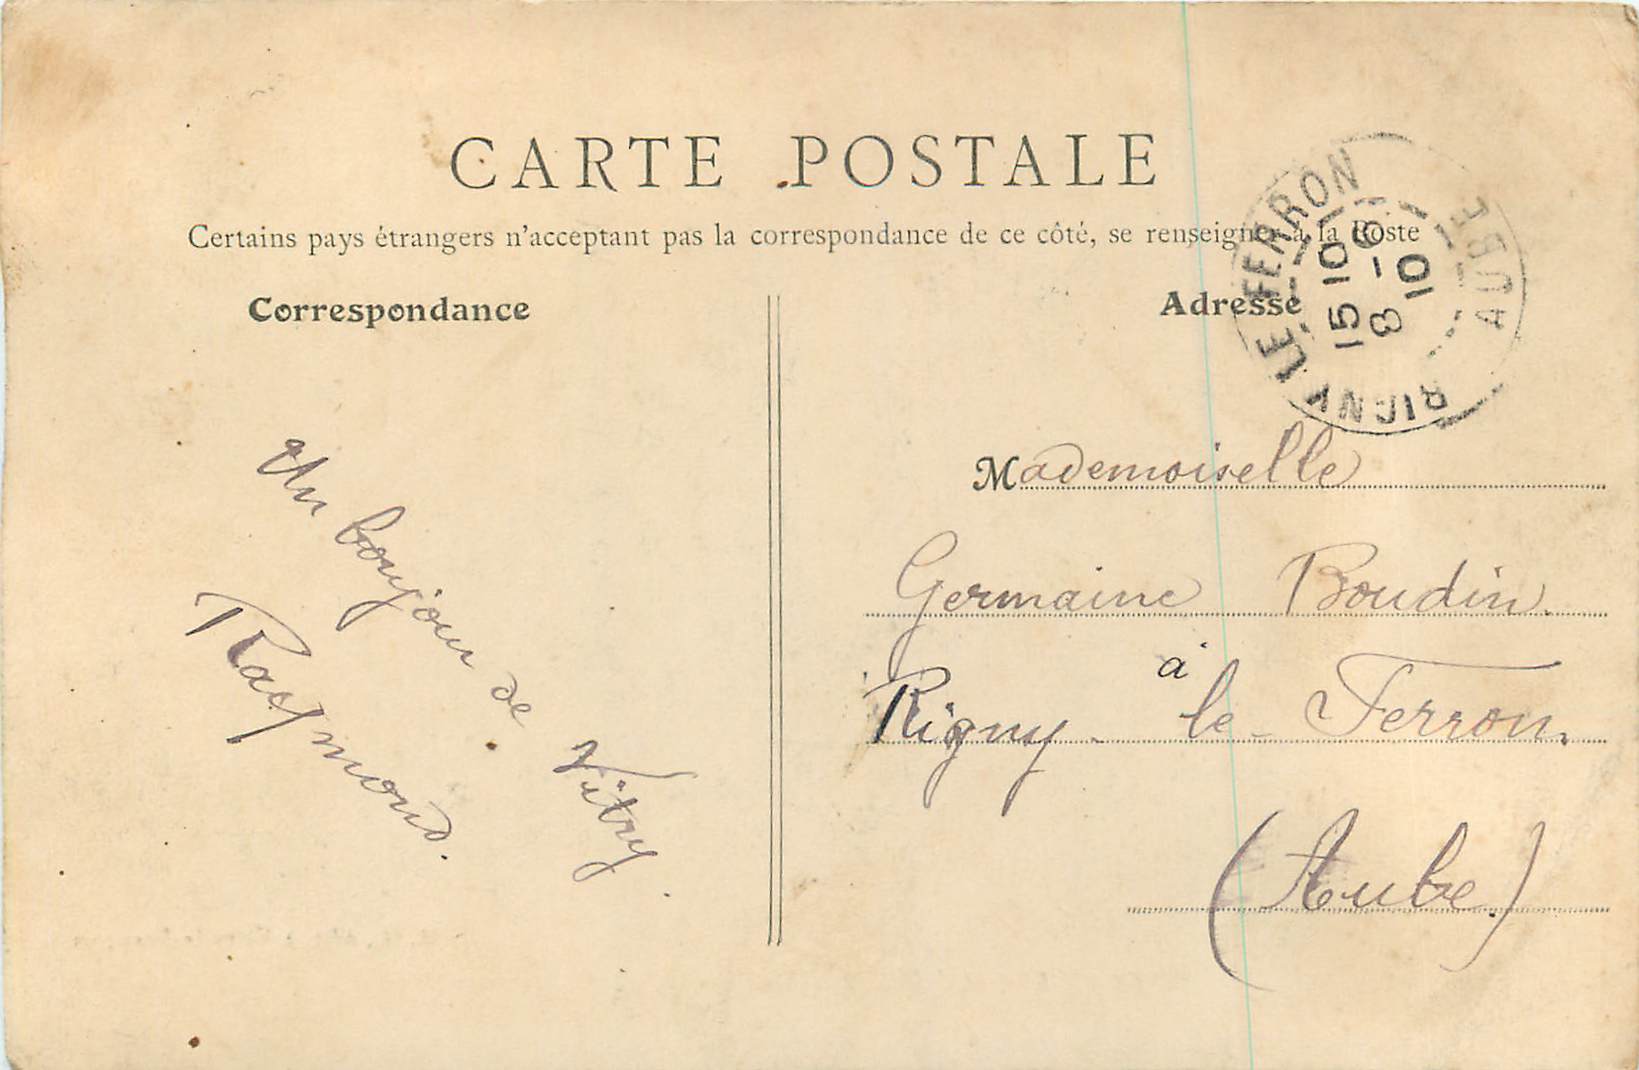 CARTE POSTALE
Certains pays étrangers n'acceptant pas la correspondance de ce côté, se renseigner à la Poste
Correspondance
Un boujour de Vitry
Raymond.
Adresse
RIGNY LE FERRON
AUBE
15 10
8 - 6
10
Mademoiselle
Germaine Boudin.
à
Rigny - le - Ferron.
(Aube)